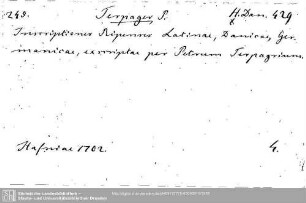 248. Terpager P. H. Dan. 429
Inscriptiones Ripenses Latinae, Danicae, Ger-
manicae, exscriptae per Petrum Terpagerium.
Hafniae 1702. 4.
Sächsische Landesbibliothek -
Staats- und Universitätsbibliothek Dresden